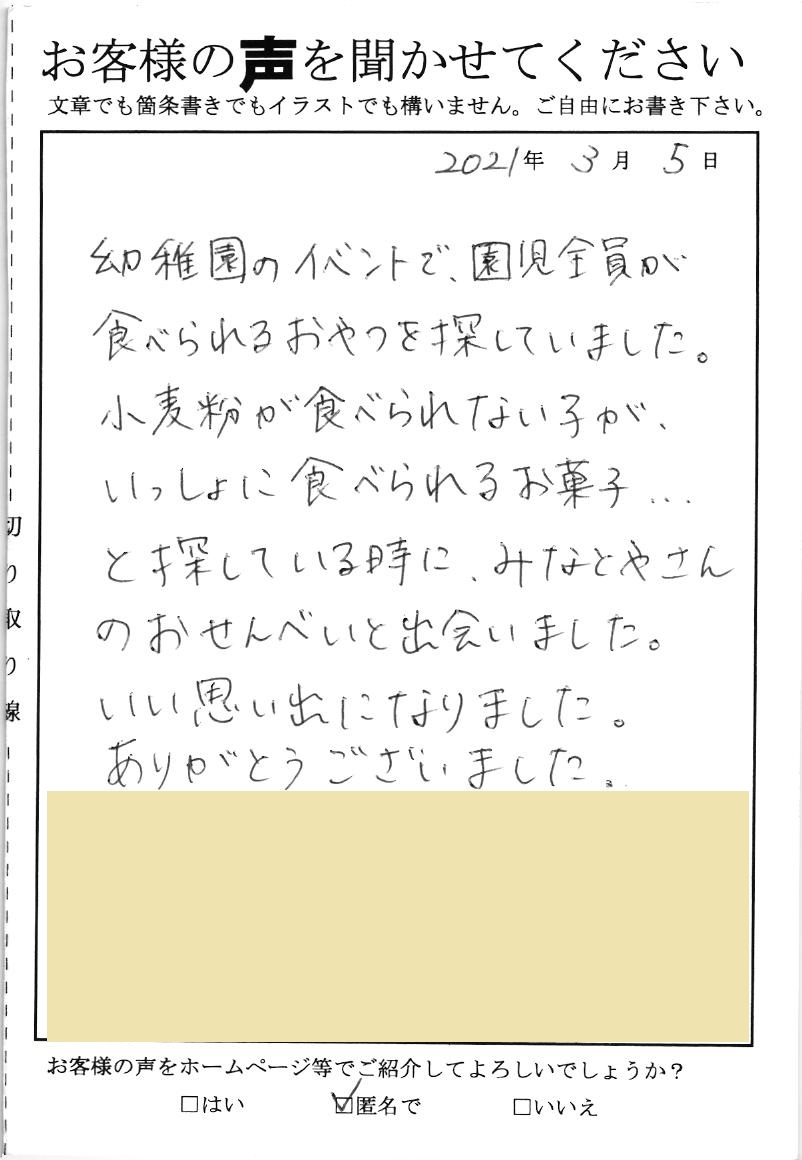 お客様の声を聞かせてください
文章でも箇条書きでもイラストでも構いません。ご自由にお書き下さい。
2021年 3月 5日
幼稚園のイベントで、園児全員が
食べられるおやつを探していました。
小麦粉が食べられない子が、
いっしょに食べられるお菓子...
と探している時に、みなとやさん
のおせんべいと出会いました。
いい思い出になりました。
ありがとうございました。
切り取り線
お客様の声をホームページ等でご紹介してよろしいでしょうか?
□はい ☑匿名で □いいえ